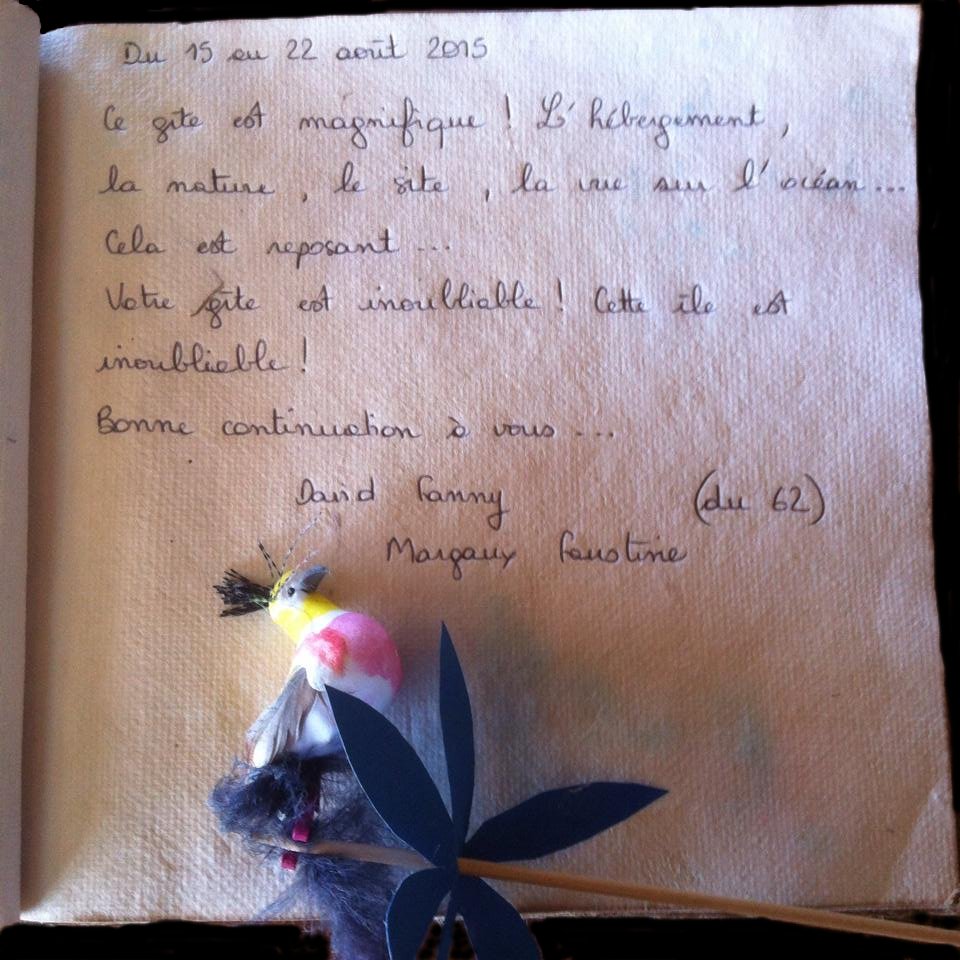 Du 15 au 22 août 2015
Ce gîte est magnifique ! L'hébergement,
la nature, le site, la vue sur l'océan...
Cela est reposant ...
Votre gîte est inoubliable ! Cette île est
inoubliable !
Bonne continuation à vous ...
David Fanny (du 62)
Margaux Faustine